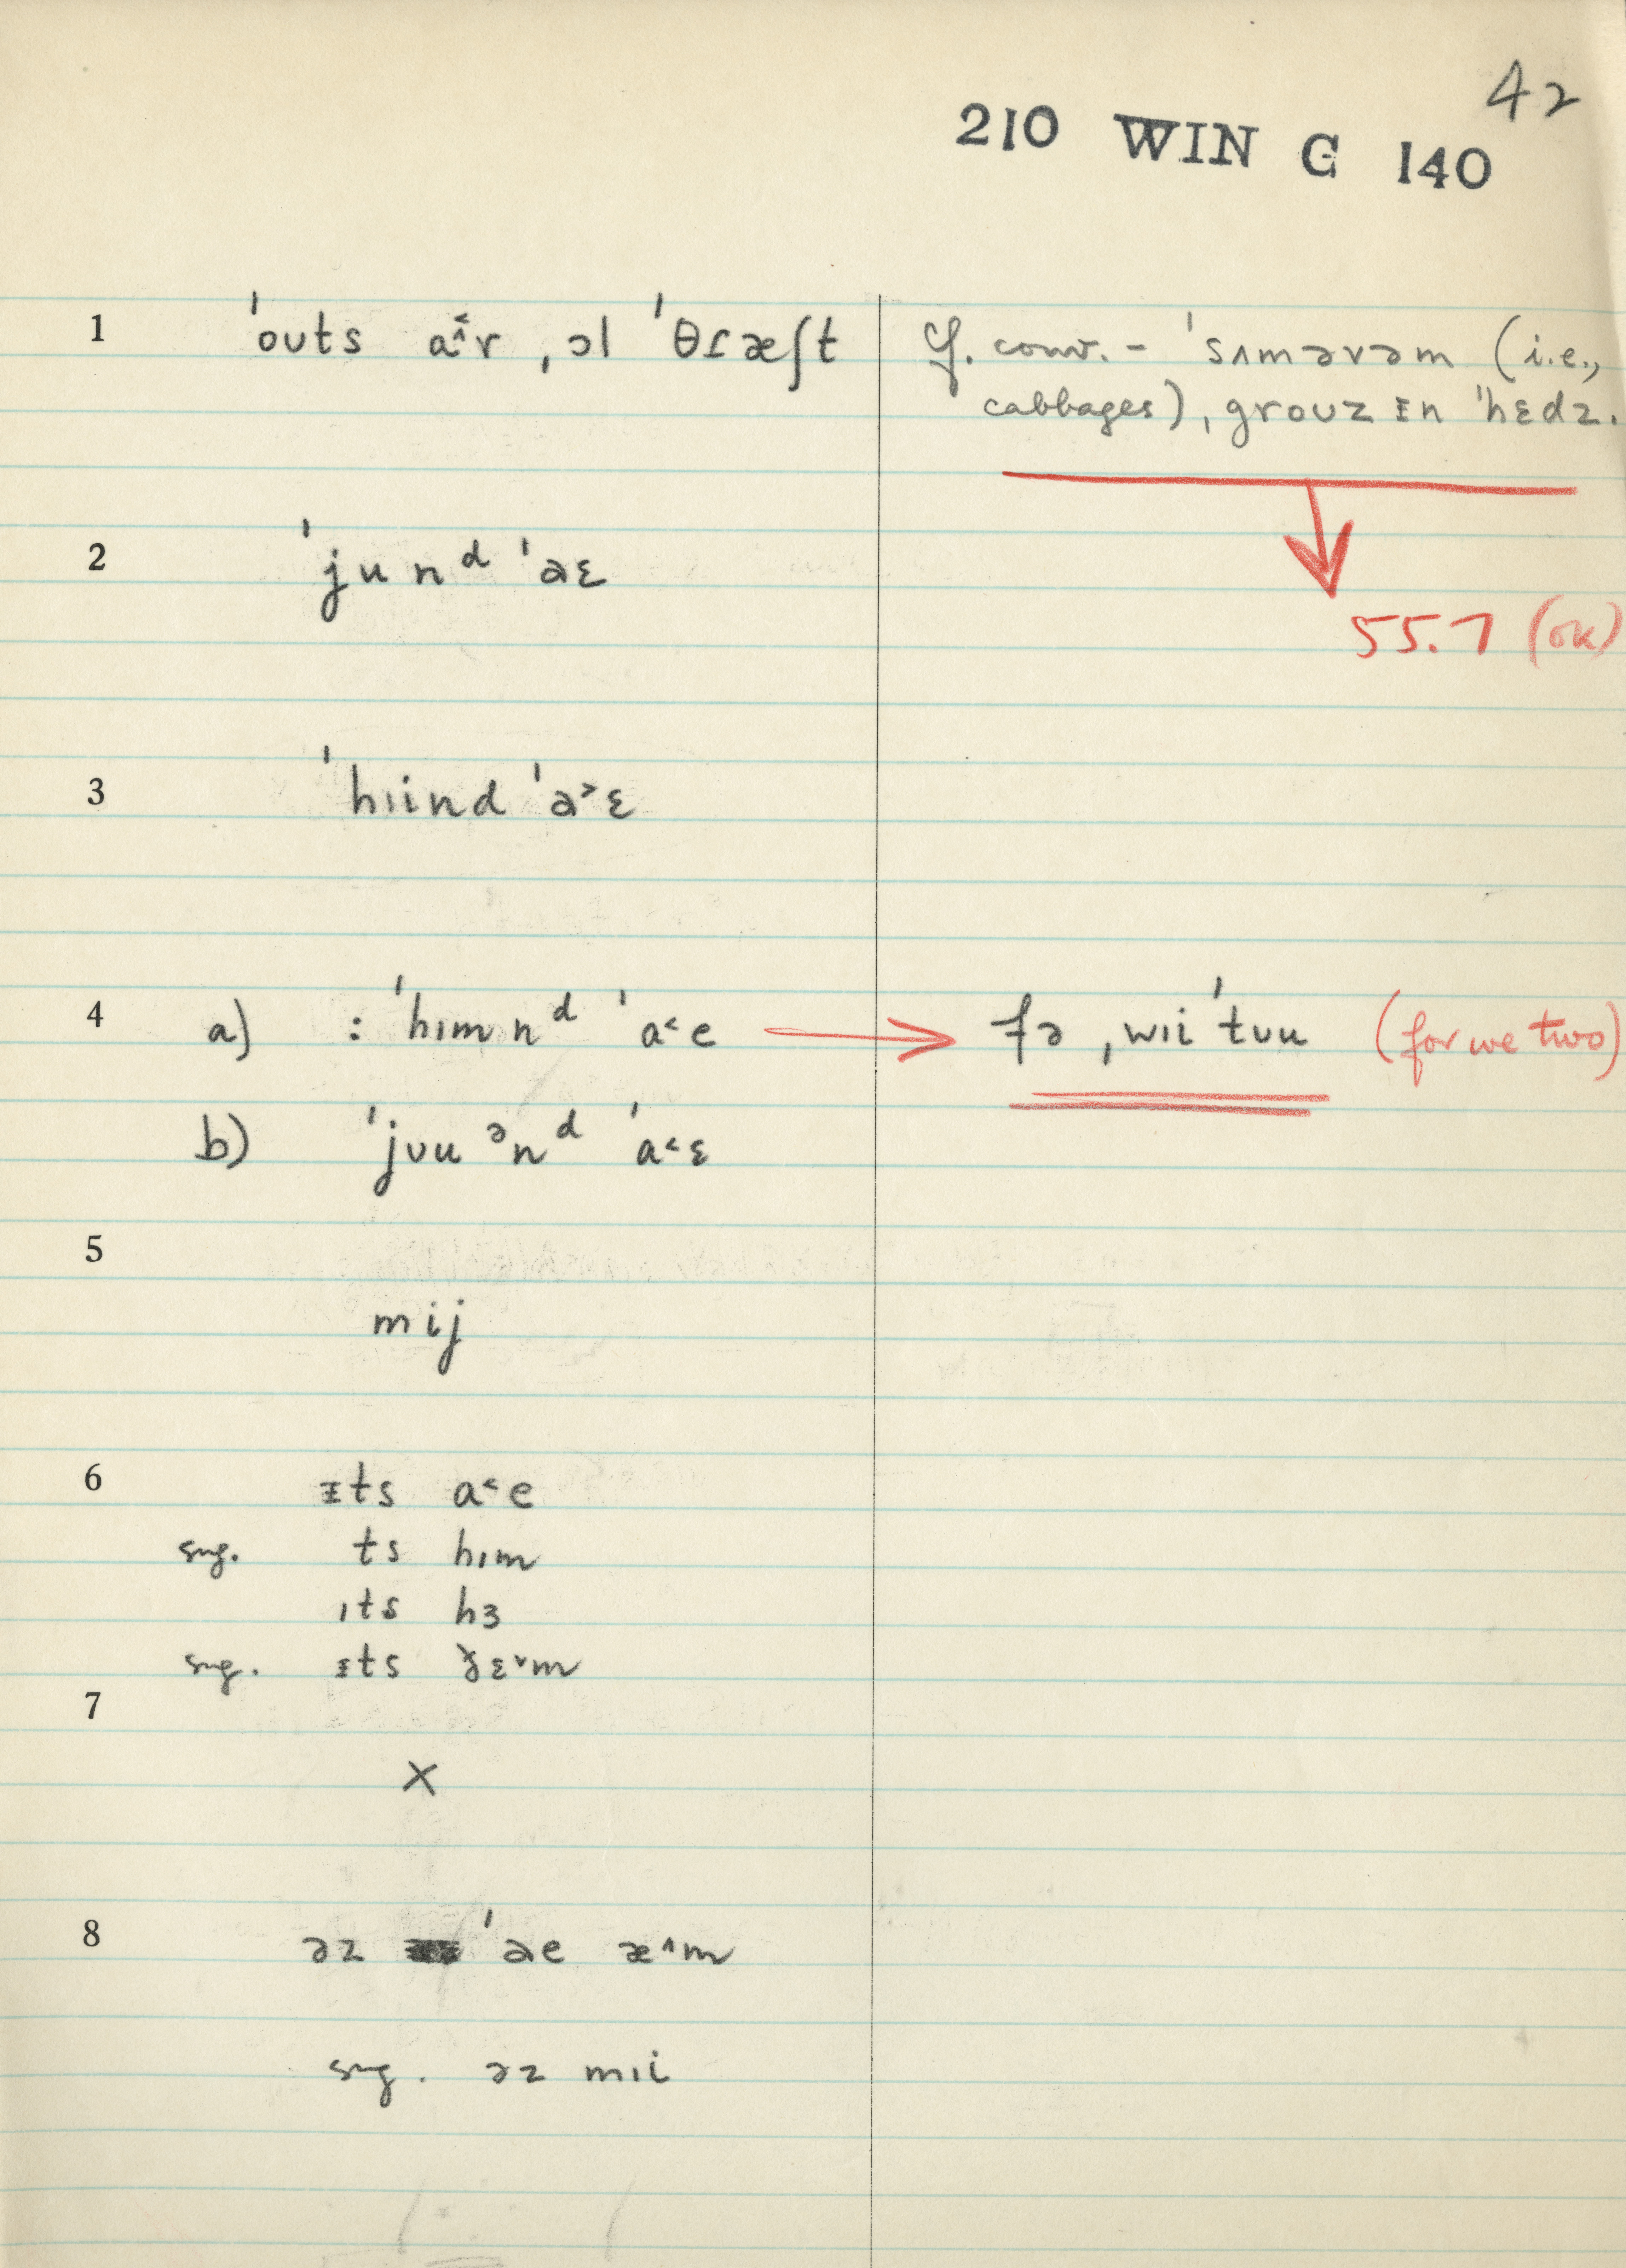 42
210 WIN G 140
1 ˈouts a˂̂r ˌɔl ˈθɾæʃt
cf. conv. – ˈsʌməvəm (i.e.,
cabbages), grouz ɪn ˈhɛdz.
2 ˈjunᵈ ˈəɛ
55.7 (ok)
3 ˈhɪind ˈə˃ɛ
4 a) : ˈhɪmnᵈ ˈa˂e → fə ˌwɪiˈtʊu (for we two)
b) ˈjʊuᵊnᵈ ˈa˂ɛ
5
mij
6 ɪts a˂e
sug. ts hɪm
ɪts hɜ
sug. ɪts ðɛ˅m
7
×
8 əz ˈəe æ˄m
sug. əz mɪi